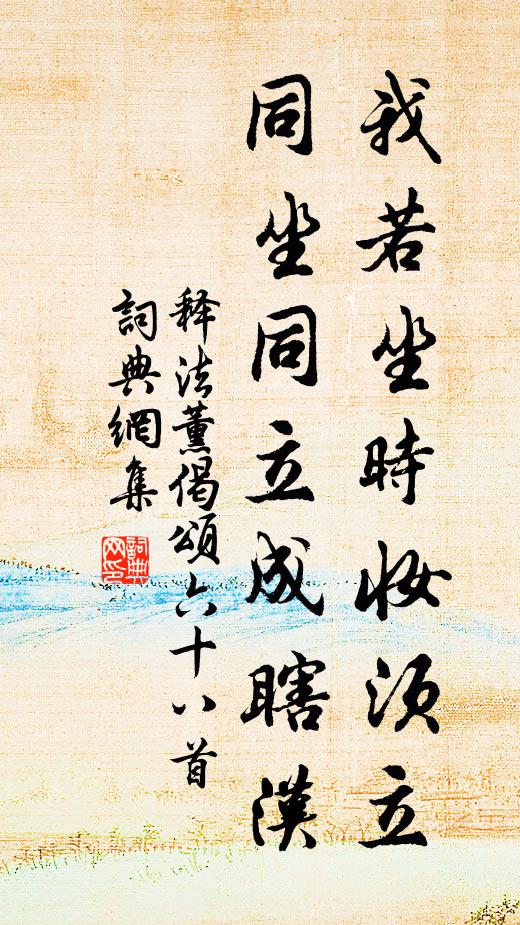 我若坐時妆須立
同坐同立成瞎漢
释法薰偈頌六十八首
詞典網集
詞典网印